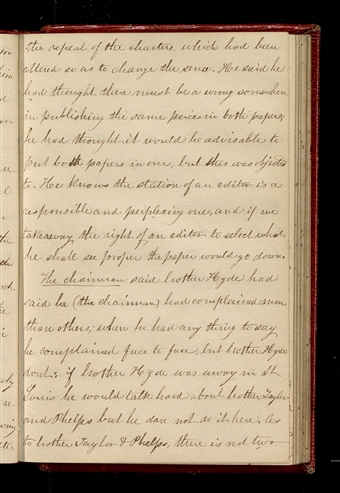 the repeal of the charters, which had been
altered so as to change the sense. He said he
had thought there must be a wrong somewhere
in publishing the same pieces in both papers;
he had thought it would be advisable to
put both papers in one, but this was objected
to. He knows the station of an editor is a
responsible and perplexing one, and if we
take away the right of an editor to select what
he shall see proper the paper would go down.
The chairman said brother Hyde had
said he (the chairman) had complained more
than others; when he had any thing to say
he complained face to face, but brother Hyde
dont: if brother Hyde was away in St
Louis he would talk hard about brother Taylor
and Phelps but he dare not do it here. As
to brother Taylor & Phelps, there is not two